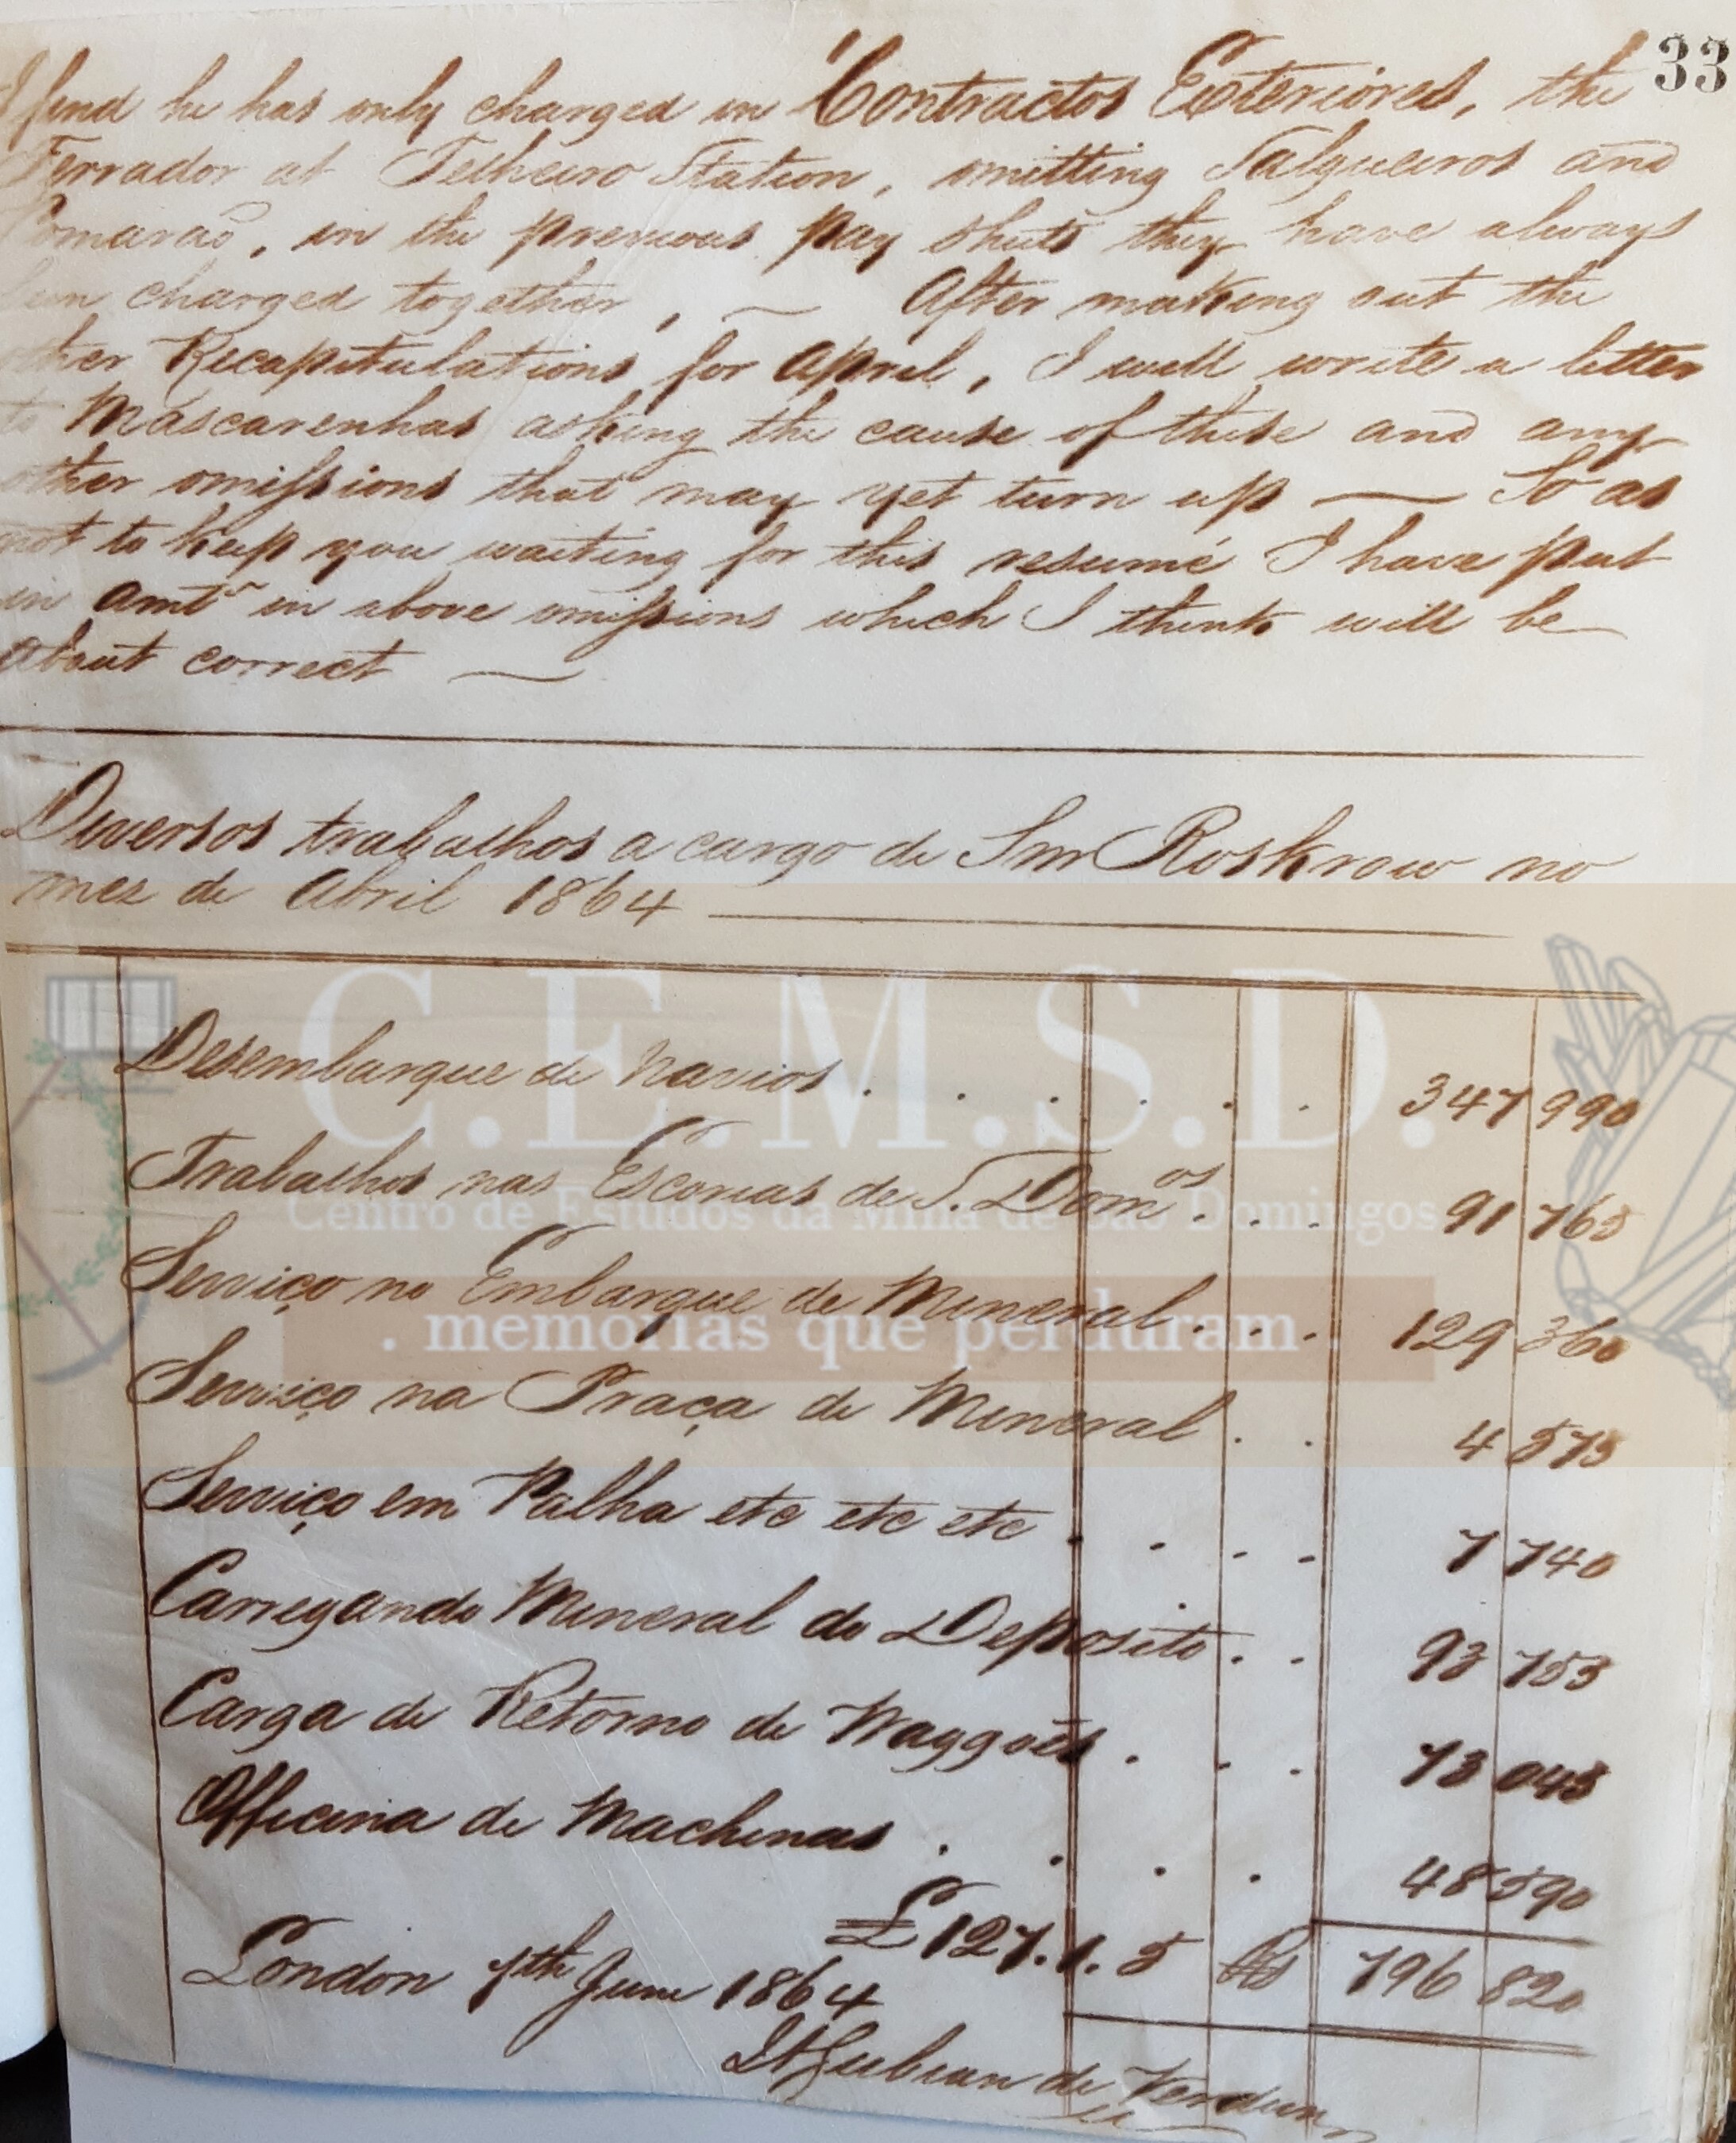 33
I find he has only charged in "Contractos Exteriores, the
Ferrador at Telheiro Station, omitting Salgueiros and
Pomarão, in the previous pay sheets they have always
been charged together, — After making out the
other Recapitulations for April, I will write a letter
to Mascarenhas asking the cause of these and any
other omissions that may yet turn up — So as
not to keep you waiting for this resumé I have put
in amts in above omissions which I think will be
about correct —
Diversos trabalhos a cargo de Snr Roskrow no
mez de Abril 1864
Desembarque de Navios . . . . . . 347 990
Trabalhos nas Escorias de S. Domos . . . 91 765
Serviço no Embarque de Mineral . . . 129 360
Serviço na Praça de Mineral . . 4 575
Serviço em Palha etc etc etc . . . . 7 740
Carregando Mineral do Deposito . . 93 755
Carga de Retorno de Waggoẽs . . . 73 045
Officina de Machinas . . . . 48 590
£127. 1. 5 Rs 796 820
London 7th June 1864
de Verdun
C.E.M.S.D.
Centro de Estudos da Mina de São Domingos
. memorias que perduram .